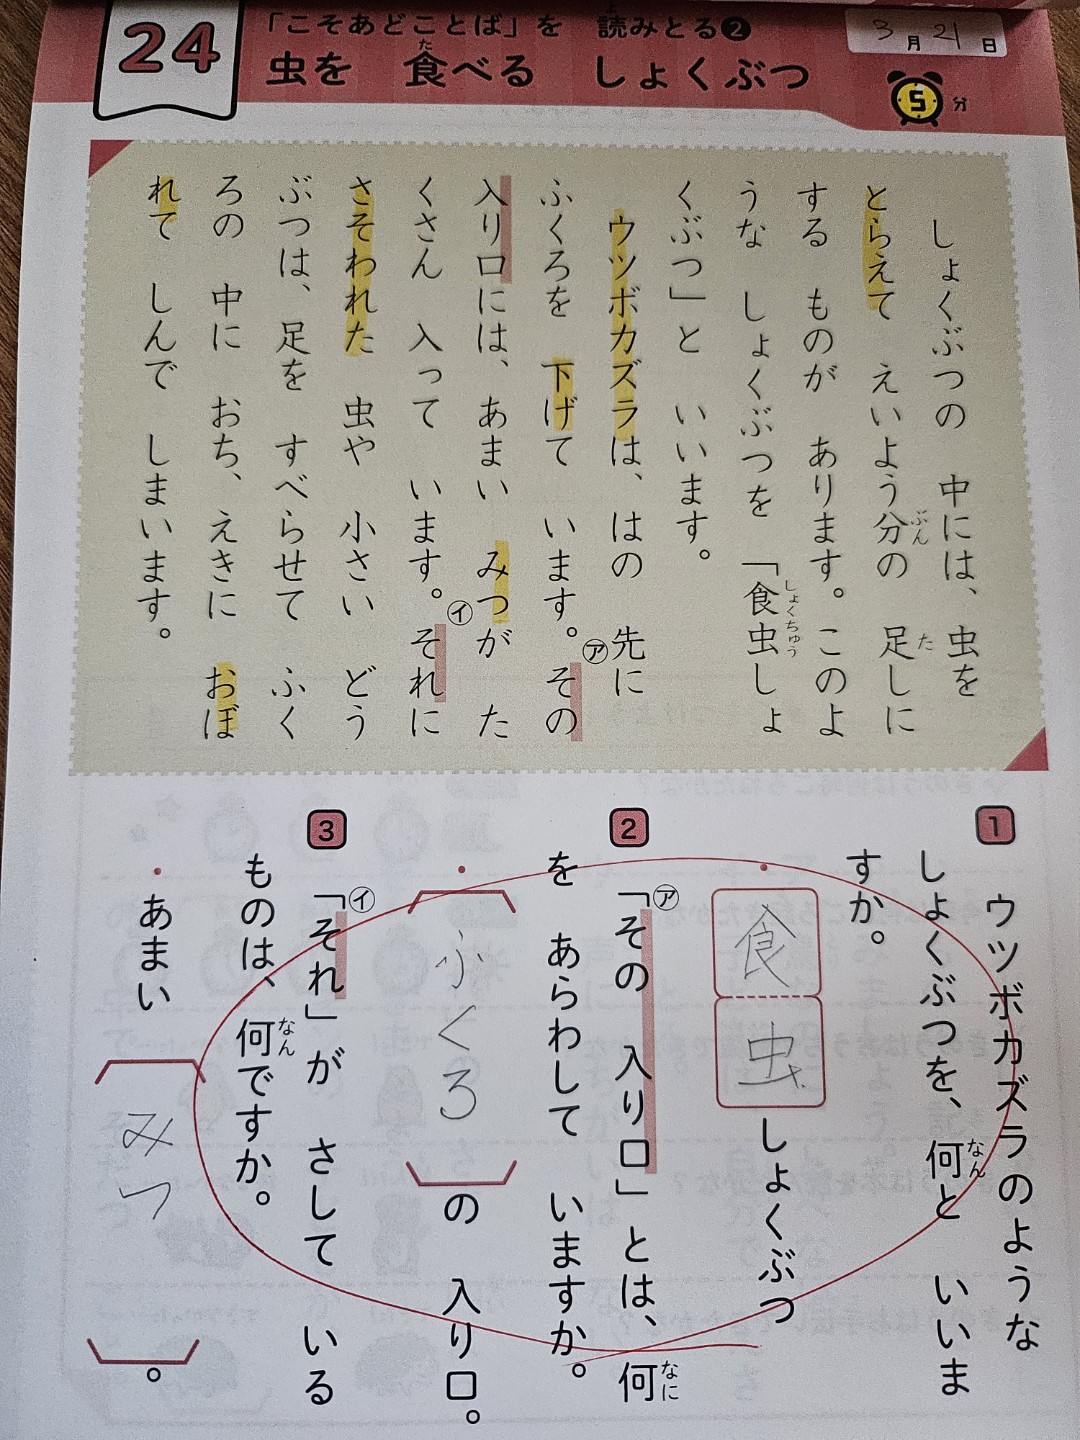 24
「こそあどことば」を 読みとる❷
虫を 食べる しょくぶつ
3月21日
5分
しょくぶつの 中には、虫を
とらえて えいよう分の 足しに
する ものが あります。このよ
うな しょくぶつを 「食虫しょ
くぶつ」と いいます。
ウツボカズラは、はの 先に
ふくろを 下げて います。㋐その
入り口には、あまい みつが た
くさん 入って います。㋑それに
さそわれた 虫や 小さい どう
ぶつは、足を すべらせて ふく
ろの 中に おち、えきに おぼ
れて しんで しまいます。
1 ウツボカズラのような
しょくぶつを、何と いいま
すか。
・食虫しょくぶつ
2 ㋐「その 入り口」とは、何
を あらわして いますか。
・ふくろの 入り口。
3 ㋑「それ」が さして いる
ものは、何ですか。
・あまい みつ。